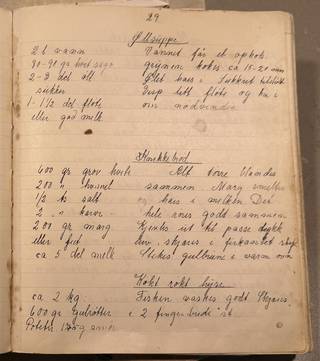 29
Ølsuppe
2 l vann
80-90 gr sago
2-3 del øl
sukker
1-1½ del fløte
eller god melk
Vannet får et opkok
grynene kokes ca 15-20 min
Ølet has i Sukkret tilslutt
fløte og
om nødvendig
Knekkebrød
600 gr grov hvete
200 " havremel
½ ts salt
2 " karve
200 gr marg
eller fett
ca 5 del melk
Alt tørre blandes
sammen Marg smeltes
og has i melken Det
hele røres godt sammen
Kjevles ut til passe tykk
leiv, skjæres i firkantet
Stekes gulbrune i varm ovn
Kokt røkt hyse
ca 2 kg
600 gr Gulrøtter
Potetis 150 g smør
Fisken vaskes godt Skjæres
i 2 fingerbrede st